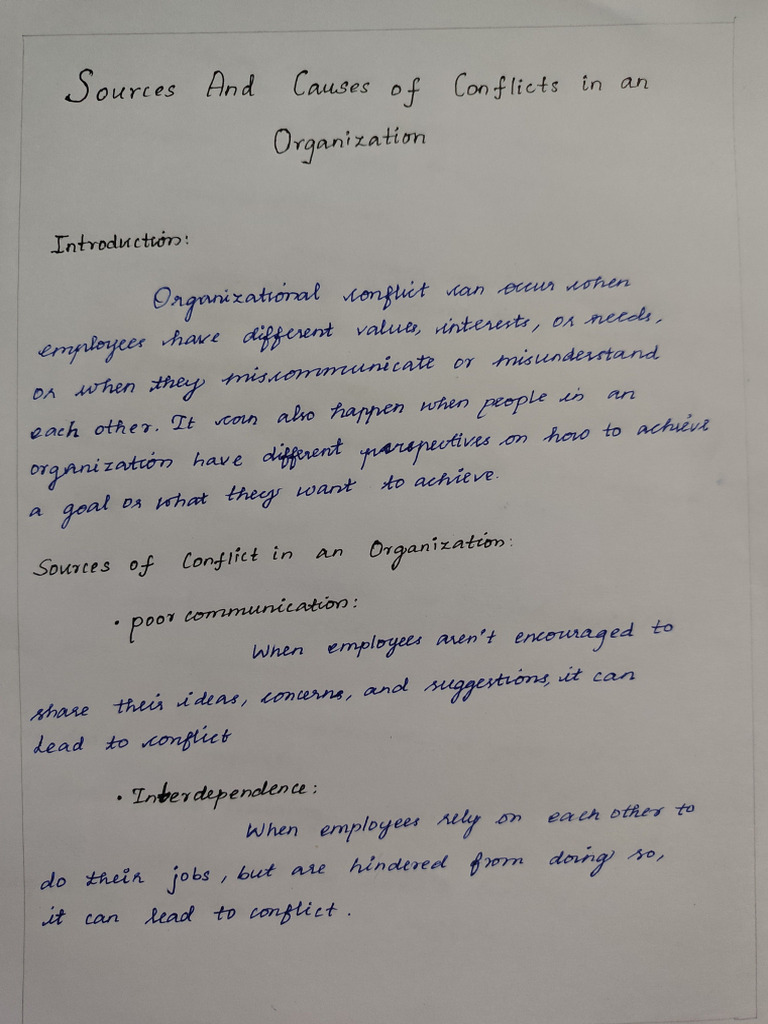 Sources And Causes of Conflicts in an
Organization
Introduction:
Organizational conflict can occur when
employees have different values, interests, or needs,
or when they miscommunicate or misunderstand
each other. It can also happen when people in an
organization have different perspectives on how to achieve
a goal or what they want to achieve.
Sources of Conflict in an Organization:
• poor communication:
When employees aren't encouraged to
share their ideas, concerns, and suggestions, it can
lead to conflict
• Interdependence:
When employees rely on each other to
do their jobs, but are hindered from doing so,
it can lead to conflict.